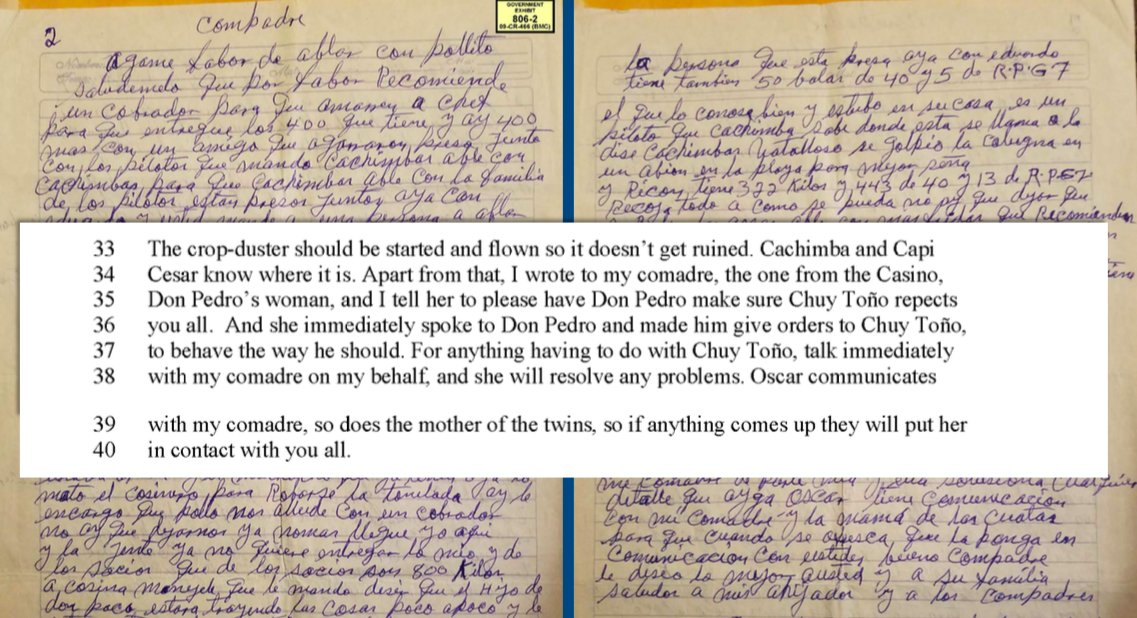 GOVERNMENT
EXHIBIT
806-2
09-CR-466 (BMC)
2
Compadre
agame fabor de ablar con pollito
Saludemelo que por fabor Recomiende
un cobrador para que amarren a Chef
para que entregue los 400 que tiene y ay 400
mas con un amigo que agarraron preso junto
con los pilotos que mando Cachimbas able con
Cachimbas para que Cachimbas able con la familia
de los pilotos estan presos juntos aya con
mato el cosinero para Robarse la tonelada ay le
encargo que pollo nos allude con un cobrador
no ay que dejarnos ya nomas llegue yo aqui
y la jente ya no quiere entregar lo mio y de
los socios que de los socios son 800 Kilos
a cosina
don paco estara trayendo las cosas poco apoco y le
la persona que esta presa aya con eduardo
tiene tambien 50 balas de 40 y 5 de R.P.G7
el que lo conose bien y estubo en su casa es un
piloto que Cachimba sabe donde esta se llama o le
dise Cachimbas se golpio la cabesa en
un abion en la playa para mejor seña
y Ricon tiene 322 Kilos y 443 de 40 y 13 de R.P.G7
Recoja todo a como se pueda no
33 The crop-duster should be started and flown so it doesn’t get ruined. Cachimba and Capi
34 Cesar know where it is. Apart from that, I wrote to my comadre, the one from the Casino,
35 Don Pedro’s woman, and I tell her to please have Don Pedro make sure Chuy Toño repects
36 you all. And she immediately spoke to Don Pedro and made him give orders to Chuy Toño,
37 to behave the way he should. For anything having to do with Chuy Toño, talk immediately
38 with my comadre on my behalf, and she will resolve any problems. Oscar communicates
39 with my comadre, so does the mother of the twins, so if anything comes up they will put her
40 in contact with you all.
detalle que ayga Oscar tiene comunicacion
con mi comadre y la mama de las cuatas
para que cuando se ofresca que la ponga en
comunicacion con ustedes bueno compadre
le deseo lo mejor austed y a su familia
saludos a mis ahijados y a los compadres